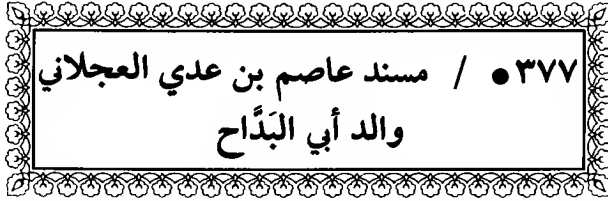 ٣٧٧ ● / مسند عاصم بن عدي العجلاني
والد أبي البَدَّاح